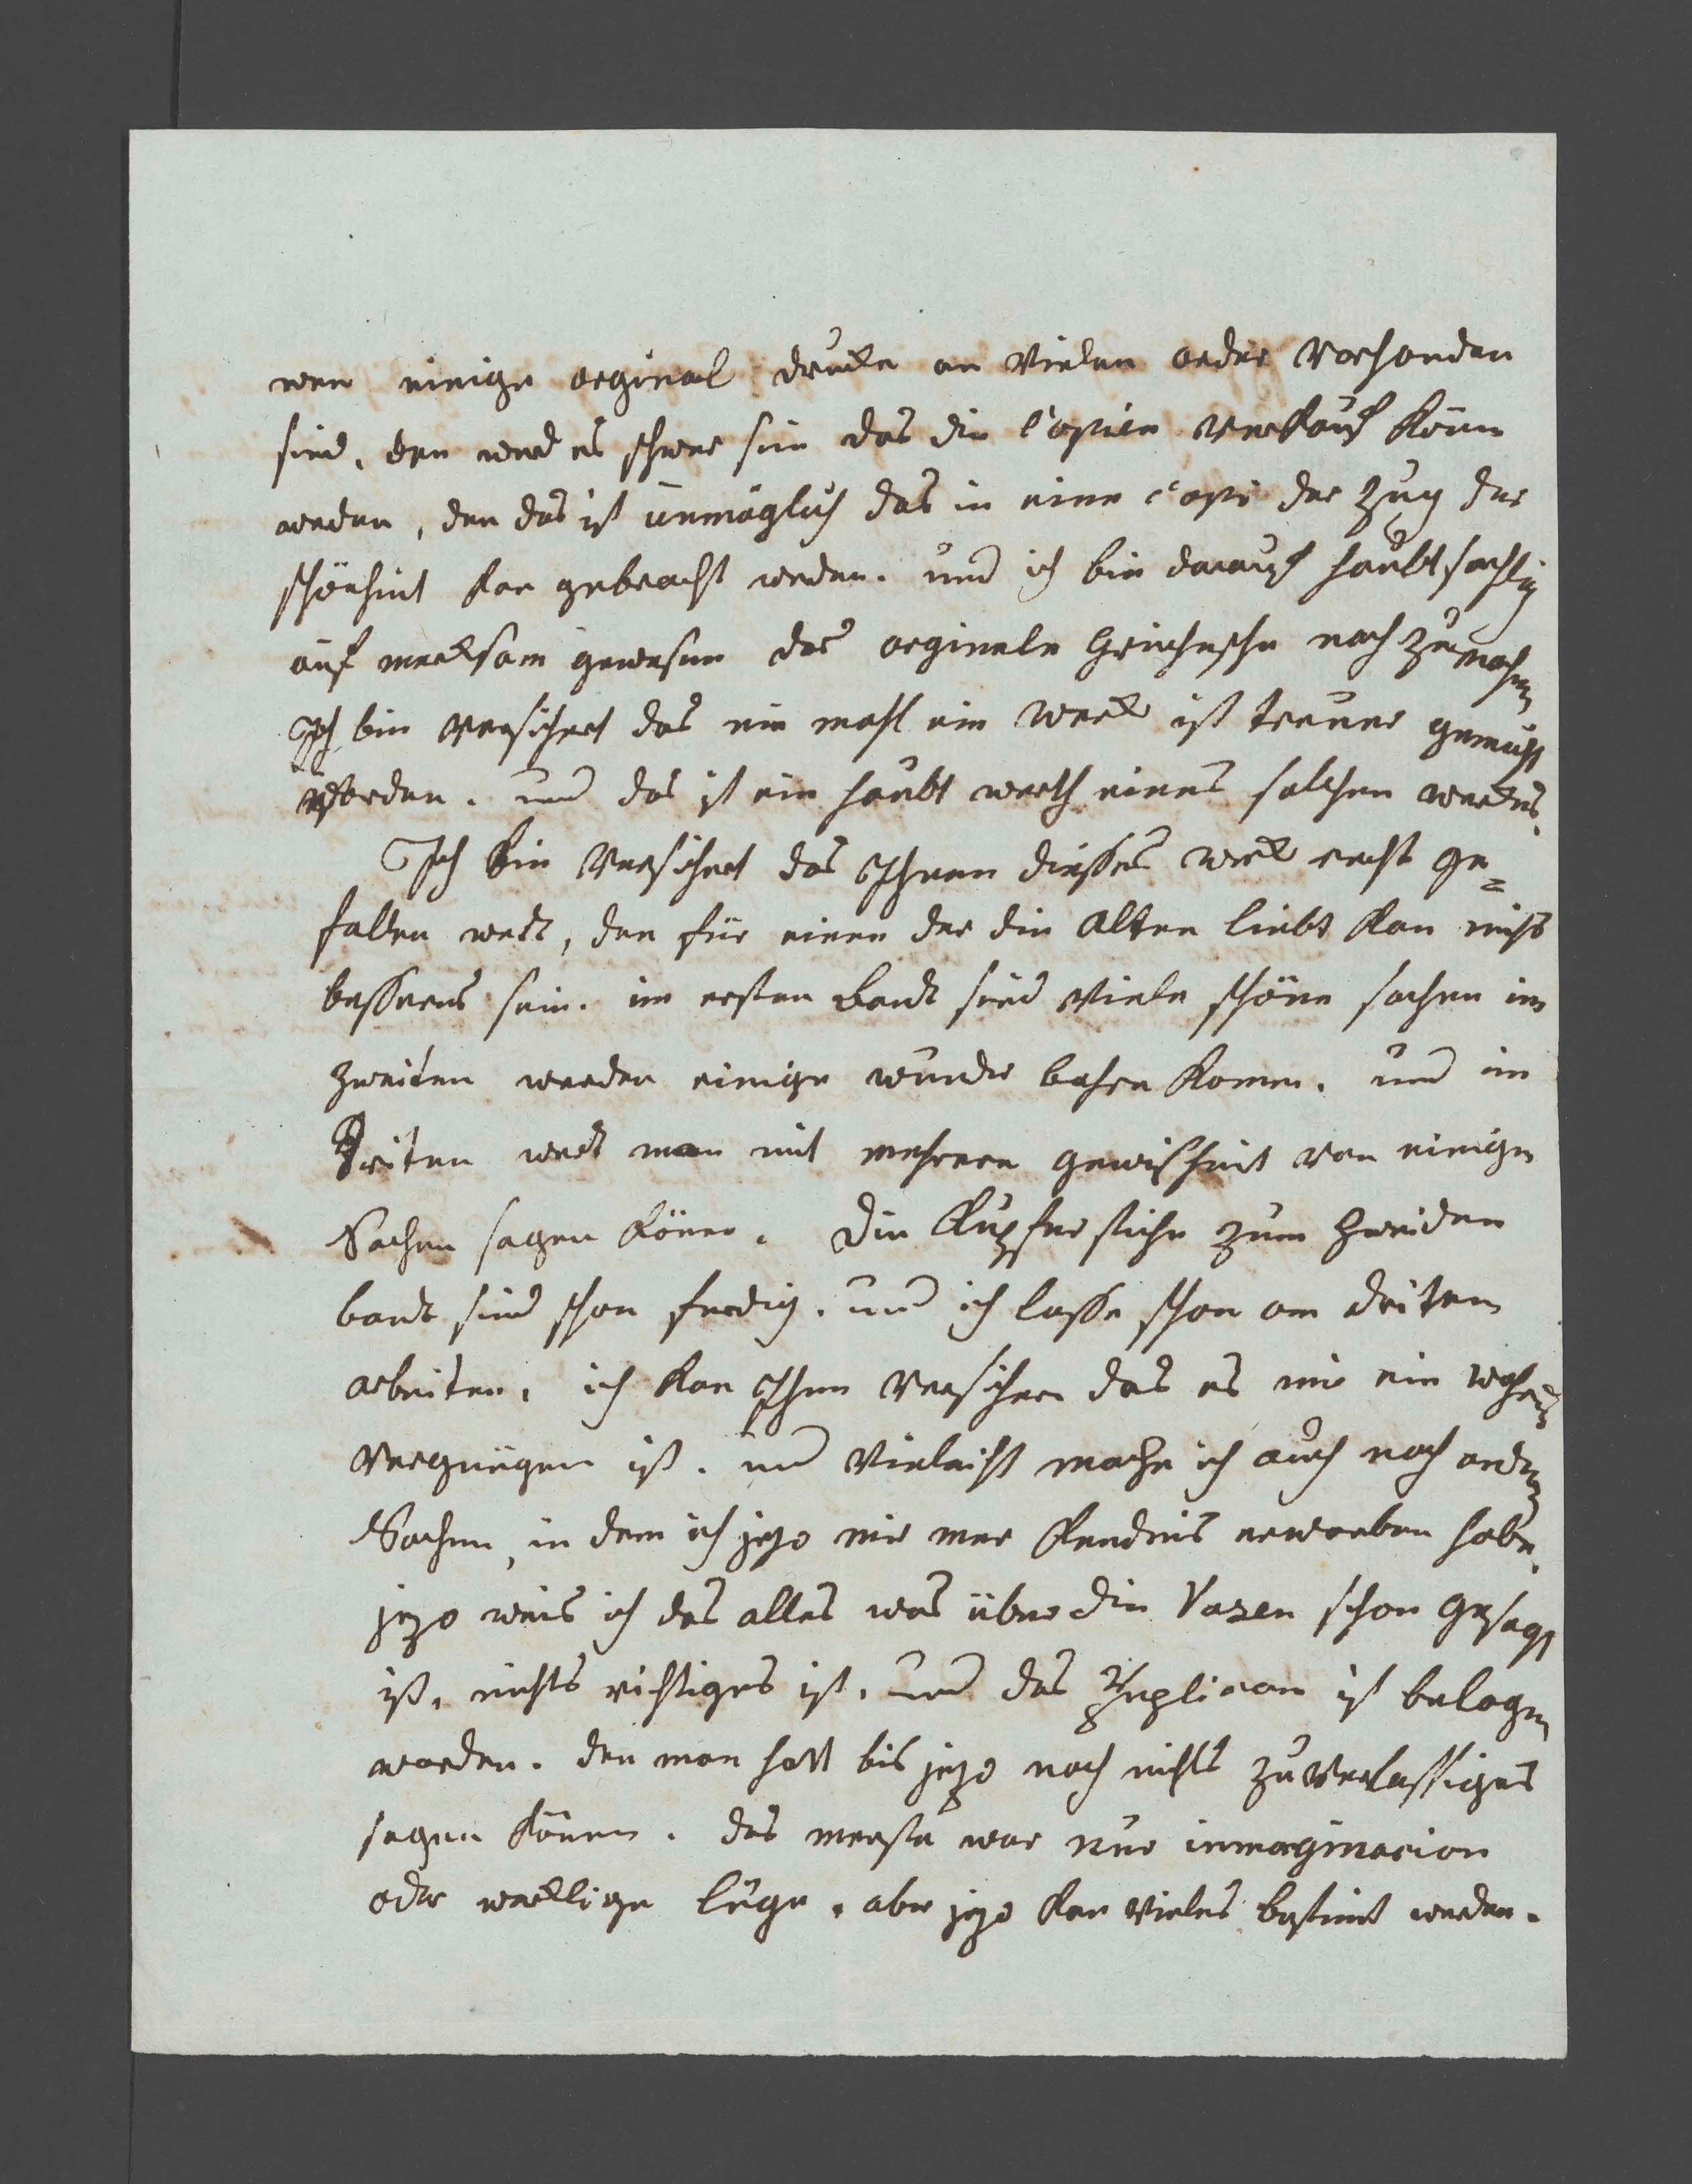 wen einige orginal drucke an vielen order vorhanden
sind, den werd es schwer sein das die Copien verkauf könn
werden, den das ist unmöglich das in eine Copi der Zug der
schönheit kan gebracht werden. und ich bin darauf haubtsachlig
auf merksam gewesen das orginele Grichesche nach zu machen
Ich bin versichert das nie mahl ein werck ist treuer gemacht
worden. und das ist ein haubt werth eines solchen werckes.
Ich bin versichert das Ihnen diesses werck recht ge=
fallen werd, den für einen der die Alten liebt kan nichts
besseres sein. im ersten Bandt sind viele schöne sachen im
zweiten werden einige wunder bahre komen. und im
Driten werdt man mit mehrere gewisheit von einigen
Sachen sagen könen. Die Kupferstiche zum zweiden
bandt sind schon ferdig. und ich lasse schon am driten
arbeiten. ich kan Ihnen versichern das es mir ein wahres
vergnügen ist. und vieleicht mache ich auch noch andere
Sachen, in dem ich jezo mir mer kendnis erworben habe.
jezo weis ich das alles was über die Vazen schon gesagt
ist, nichts richtiges ist. und das Puplicom ist belogen
worden. den man hatt bis jezo noch nichts zuverlassiges
sagen könen. das meiste war nur inmaginacion
oder wircklige lüge. aber jezo kan vieles bestimt werden.